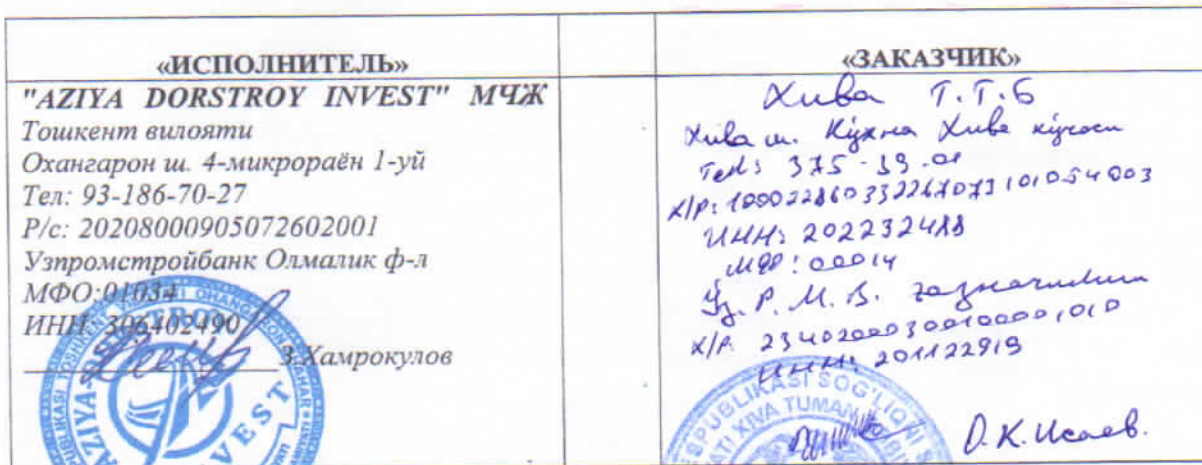 «ИСПОЛНИТЕЛЬ»
"AZIYA DORSTROY INVEST" МЧЖ
Тошкент вилояти
Охангарон ш. 4-микрораён 1-уй
Тел: 93-186-70-27
Р/с: 20208000905072602001
Узпромстройбанк Олмалик ф-л
МФО:01034
ИНН: 306402490
З.Хамрокулов
«ЗАКАЗЧИК»
Хива Т.Т.Б
Хива ш. Кўхна Хива кўчаси
Тел: 375-39-01
Х/р: 100022860332267073101054003
ИНН: 202232488
МФО: 00014
Ўз. Р. М. В. Ғазначилиги
Х/р. 23402000300100001010
ИНН: 201122919
О.К.Исаев.
AZIYA
INVEST
SOG'LIQNI
XIVA TUMAN